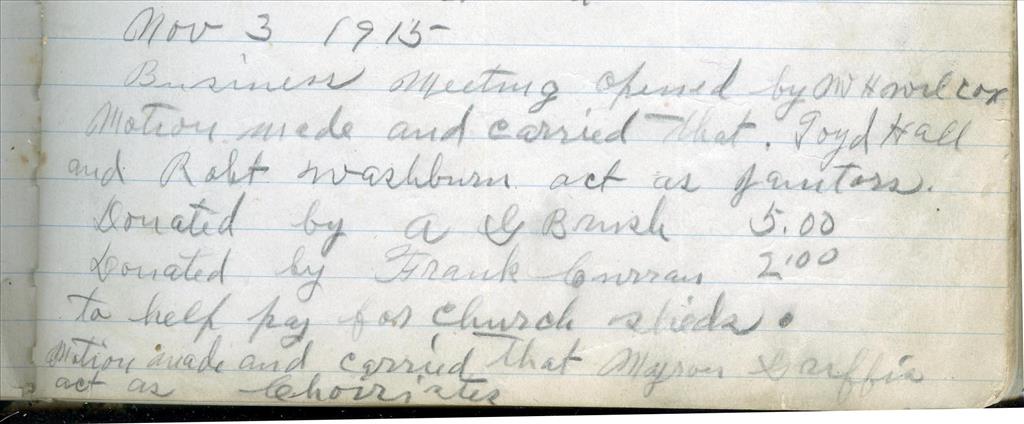 Nov 3 1915
Business Meeting opened by W H Wilcox
Motion made and carried that. Toyd Hall
and Robt Washburn act as janitors.
Donated by A G Brush 5.00
Donated by Frank Curran 2.00
to help pay for church sheds.
Motion made and carried that Myron
act as